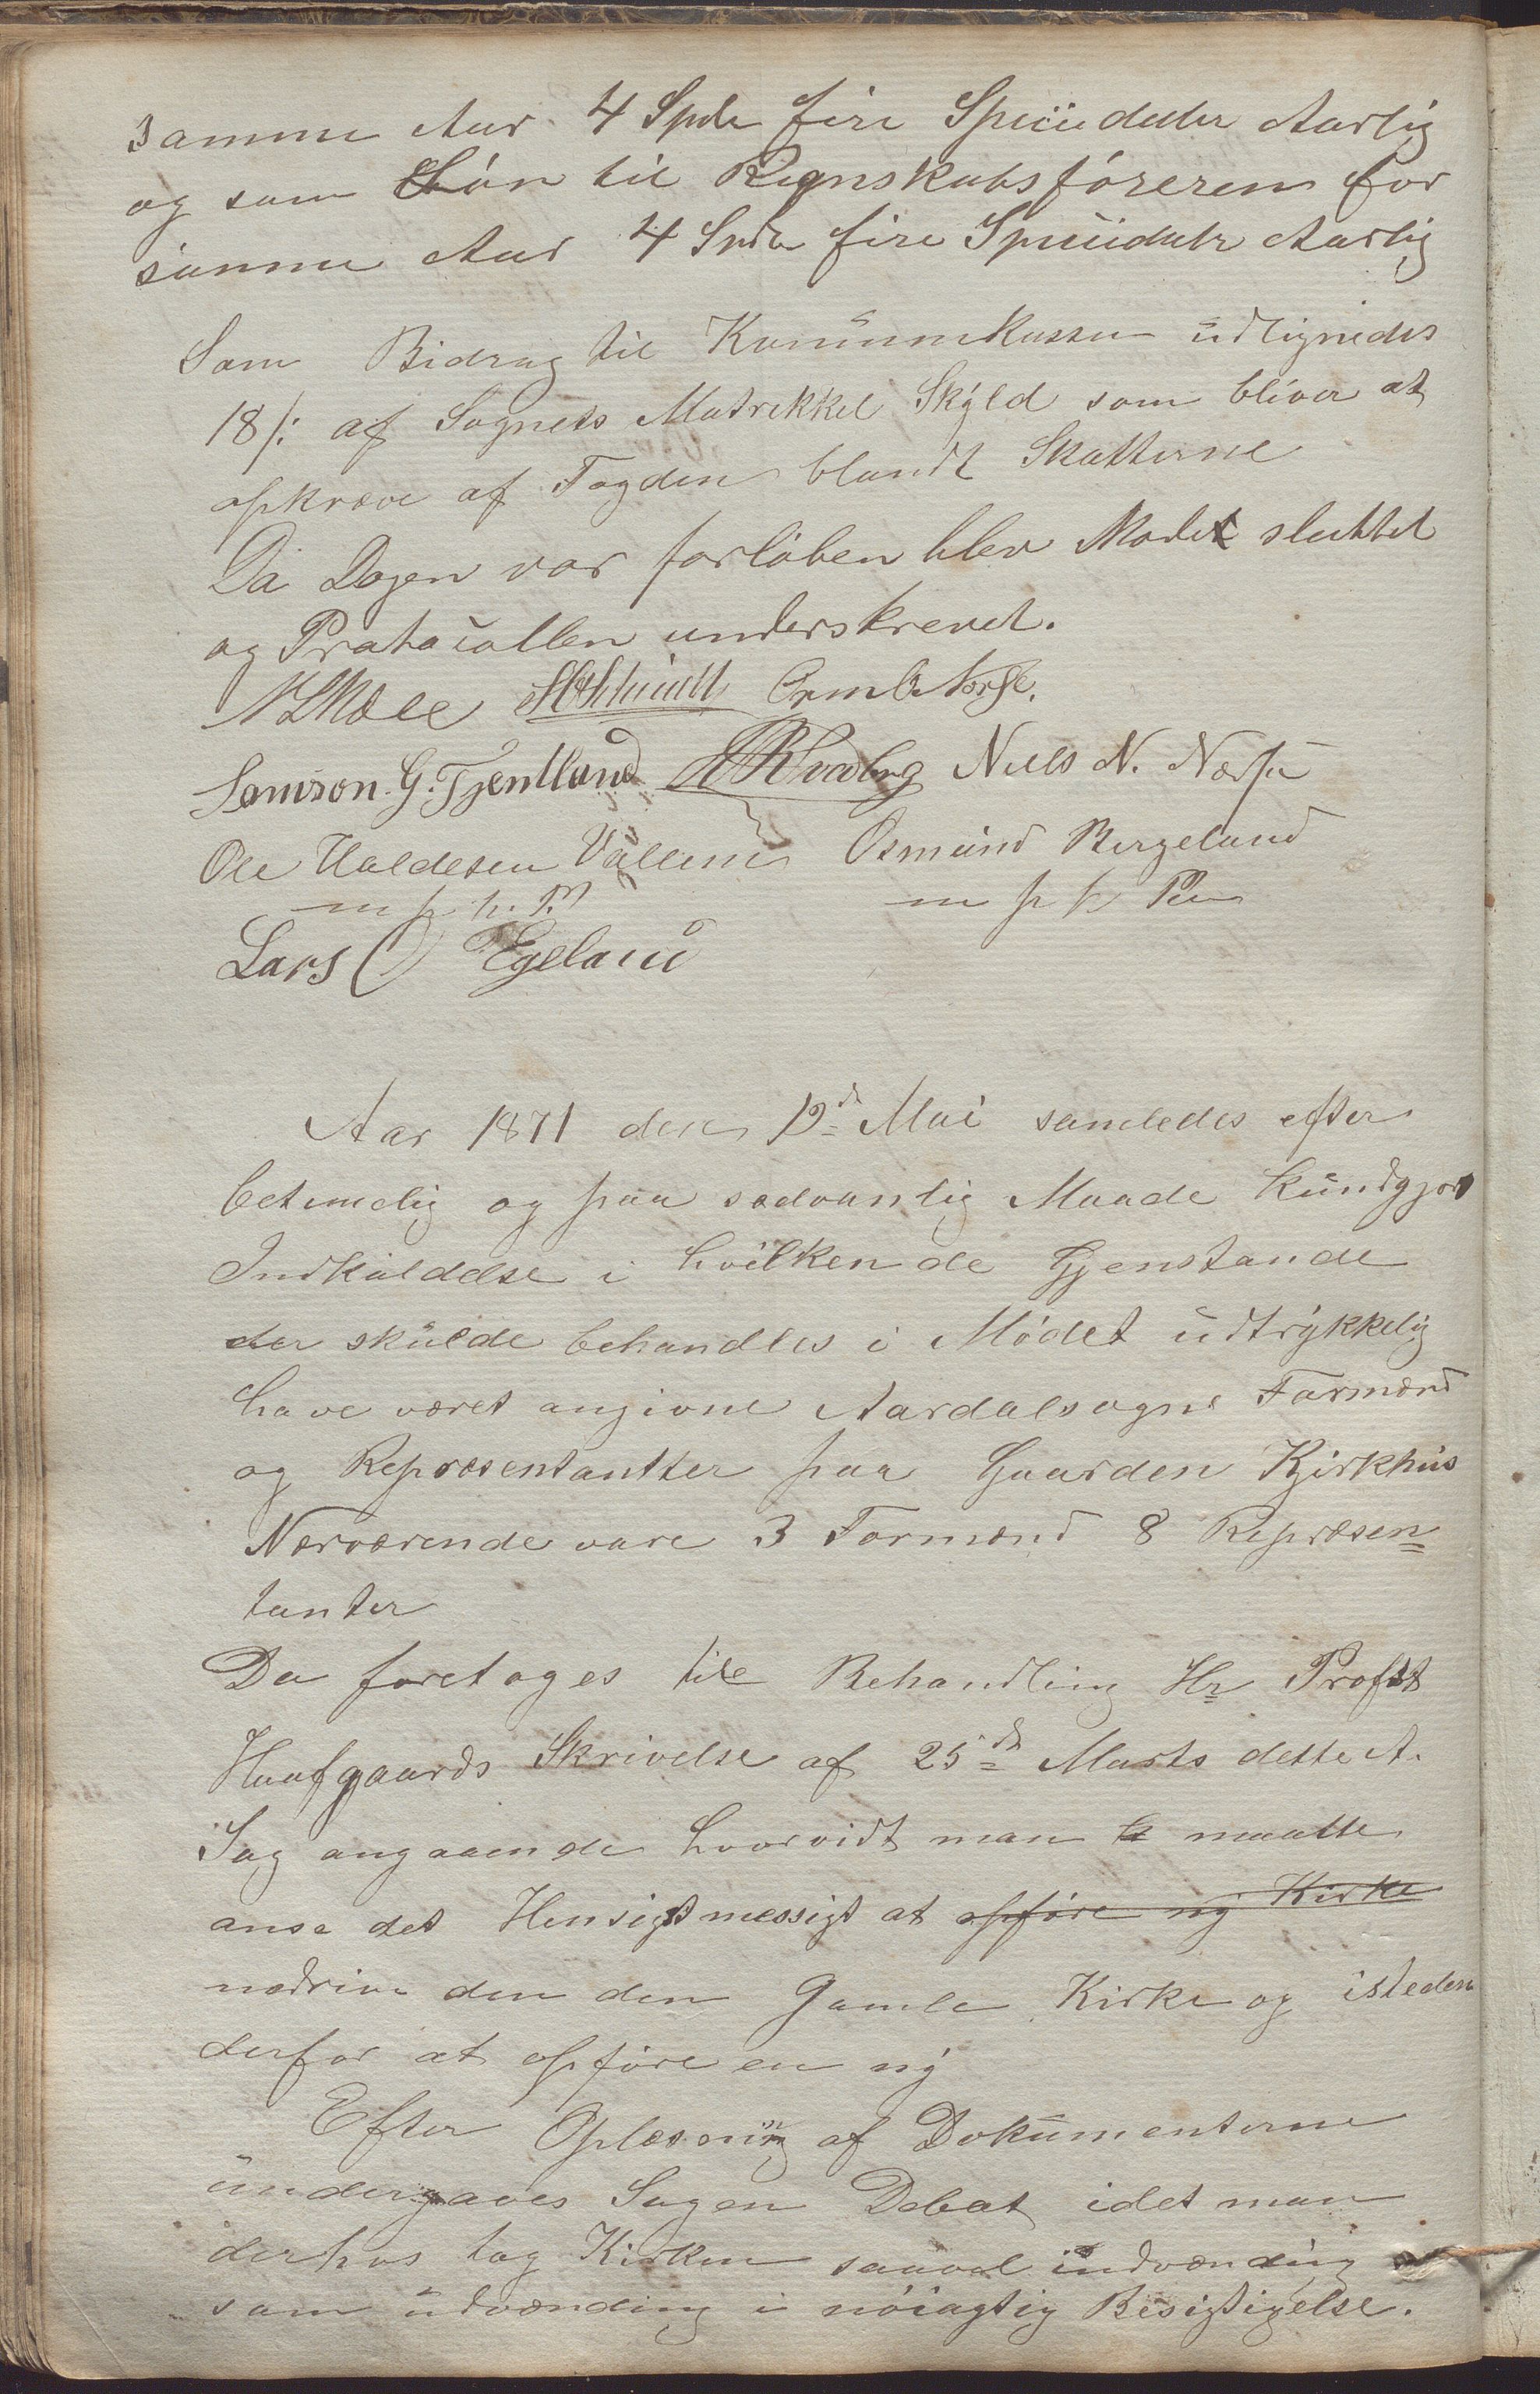 samme Aar 4 Spdr fire Speciedaler Aarlig
og som Løn til Regnskabsføreren for
samme Aar 4 Spdr fire Speciedaler Aarlig
Som Bidrag til Kommunekassen udlignedes
18/: af Sognets Matrikkel Skyld som bliver at
opkræve af Fogden blandt Skatterne
Da Dagen var forløben blev Mødet sluttet
og Protocollen underskrevet.
Orm O Nørse.
Samson. G. Tjentland Niels N. Nørse
Ole Haldesen Vallem Osmund Bergeland
m p h. P. m p h Pen
Lars O Egeland
Aar 1871 den 19de Mai samledes efter
betimelig og paa sædvanlig Maade kundgjort
Indkaldelse i hvilken de Gjenstande
der skulde behandles i Mødet udtrykkelig
have været angivne Aardalsogns Formænd
og Repræsentantter paa Gaarden Kjirkhus
Nærværende vare 3 Formænd 8 Repræsen=
tanter
Da foretoges til Behandling Hr Profst
Haafgaards Skrivelse af 25de Marts dette A.
Sag angaaende hvorvidt man maatte
anse det Hensigtmessigt at opføre ny Kirke
nedrive den den Gamle Kirke og isteden
derfor at opføre en ny
Efter Oplæsning af Dokumenterne
undergaves Sagen Debat idet man
derhos tog Kirken saavel indvending
som udvending i nøiagtig Besigtigelse.